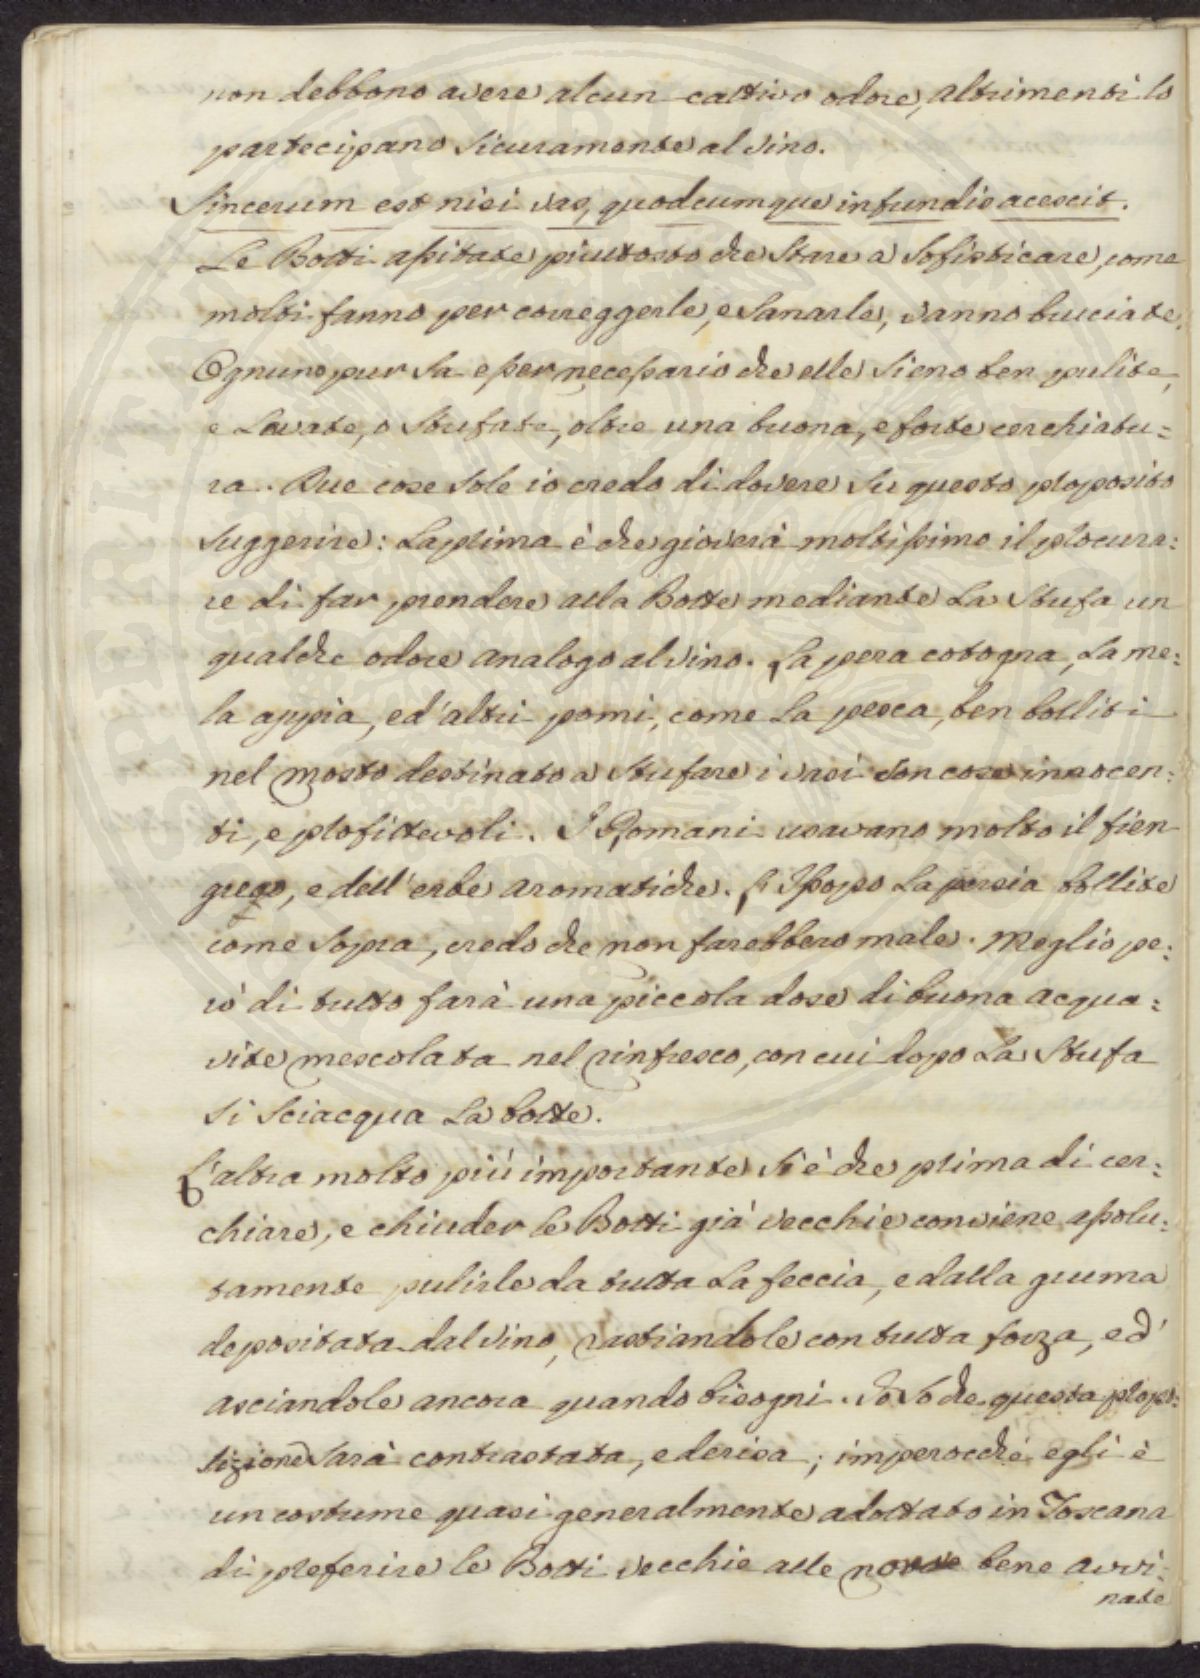 non debbono avere alcun cattivo odore, altrimenti lo
partecipano sicuramente al vino.
Sincerum est nisi vas, quodcumque infundis acescit.
Le Botti assitate piuttosto che stare a sofisticare, come
molti fanno per correggerle, e sanarle, vanno bruciate.
Ognuno pur sa esser necessario che elle sieno ben pulite,
e lavate, o stufate, oltre una buona, e forte cerchiatu=
ra. Due cose sole io credo di dovere su questo proposito
suggerire: La prima è che gioverà moltissimo il procura=
re di far prendere alla Botte mediante la stufa un
qualche odore analogo al vino. La pera cotogna, la me=
la appia, ed'altri pomi, come la pesca, ben bolliti
nel mosto destinato a stufare i vasi son cose innocen=
ti, e profittevoli. I Romani usavano molto il fien
greco, e dell'erbe aromatiche. L'Issopo la persia bollite
come sopra, credo che non farebbero male. Meglio pe=
rò di tutto farà una piccola dose di buona acqua=
vite mescolata nel rinfresco, con cui dopo la stufa
si sciacqua la botte.
L'altra molto più importante si è che prima di cer=
chiare, e chiuder le Botti già vecchie conviene assolu=
tamente pulirle da tutta la feccia, e dalla gruma
depositata dal vino, rastiandole con tutta forza, ed'
asciandole ancora quando bisogni. Io so che questa propo=
sizione sarà contrastata, e derisa; imperocché egli è
un costume quasi generalmente adottato in Toscana
di preferire le Botti vecchie alle nove bene avvi=
nate